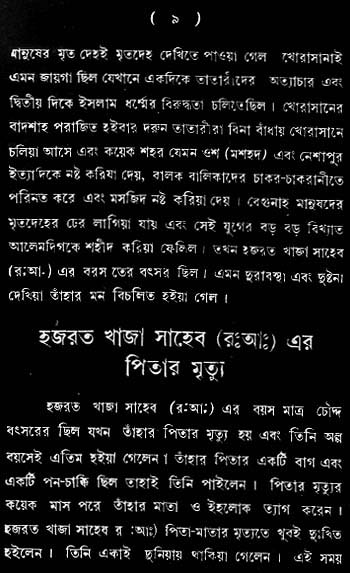 ( ৯ )
মানুষের মৃত দেহই মৃতদেহ দেখিতে পাওয়া গেল খোরাসানাই
এমন জায়গা ছিল যেখানে একদিকে তাতারীদের অত্যাচার এবং
দ্বিতীয় দিকে ইসলাম ধর্ম্মের বিরুদ্ধতা চলিতেছিল। খোরাসানের
বাদশাহ পরাজিত হইবার দরুন তাতারীরা বিনা বাঁধায় খোরাসানে
চলিয়া আসে এবং কয়েক শহর যেমন ওশ (মশহদ) এবং নেশাপুর
ইত্যাদিকে নষ্ট করিযা দেয়, বালক বালিকাদের চাকর-চাকরানীতে
পরিনত করে এবং মসজিদ নষ্ট করিয়া দেয়। বেগুনাহ মানুষদের
মৃতদেহের ঢের লাগিয়া যায় এবং সেই যুগের বড় বড় বিখ্যাত
আলেমদিগকে শহীদ করিয়া ফেলিল। তখন হজরত খাজা সাহেব
(র:আ.) এর বরস তের বৎসর ছিল। এমন দুরাবস্থা এবং দুষ্টনা
দেখিয়া তাঁহার মন বিচলিত হইয়া গেল।
হজরত খাজা সাহেব (র:আ:) এর
পিতার মৃত্যু
হজরত খাজা সাহেব (র:আ:) এর বয়স মাত্র চৌদ্দ
বৎসরের ছিল যখন তাঁহার পিতার মৃত্যু হয় এবং তিনি অল্প
বয়সেই এতিম হইয়া গেলেন। তাঁহার পিতার একটি বাগ এবং
একটি পন-চাক্কি ছিল তাহাই তিনি পাইলেন। পিতার মৃত্যুর
কয়েক মাস পরে তাঁহার মাতা ও ইহলোক ত্যাগ করেন।
হজরত খাজা সাহেব র :আঃ) পিতা-মাতার মৃত্যতে খুবই দুঃখিত
হইলেন। তিনি একাই দুনিয়ায় থাকিয়া গেলেন। এই সময়